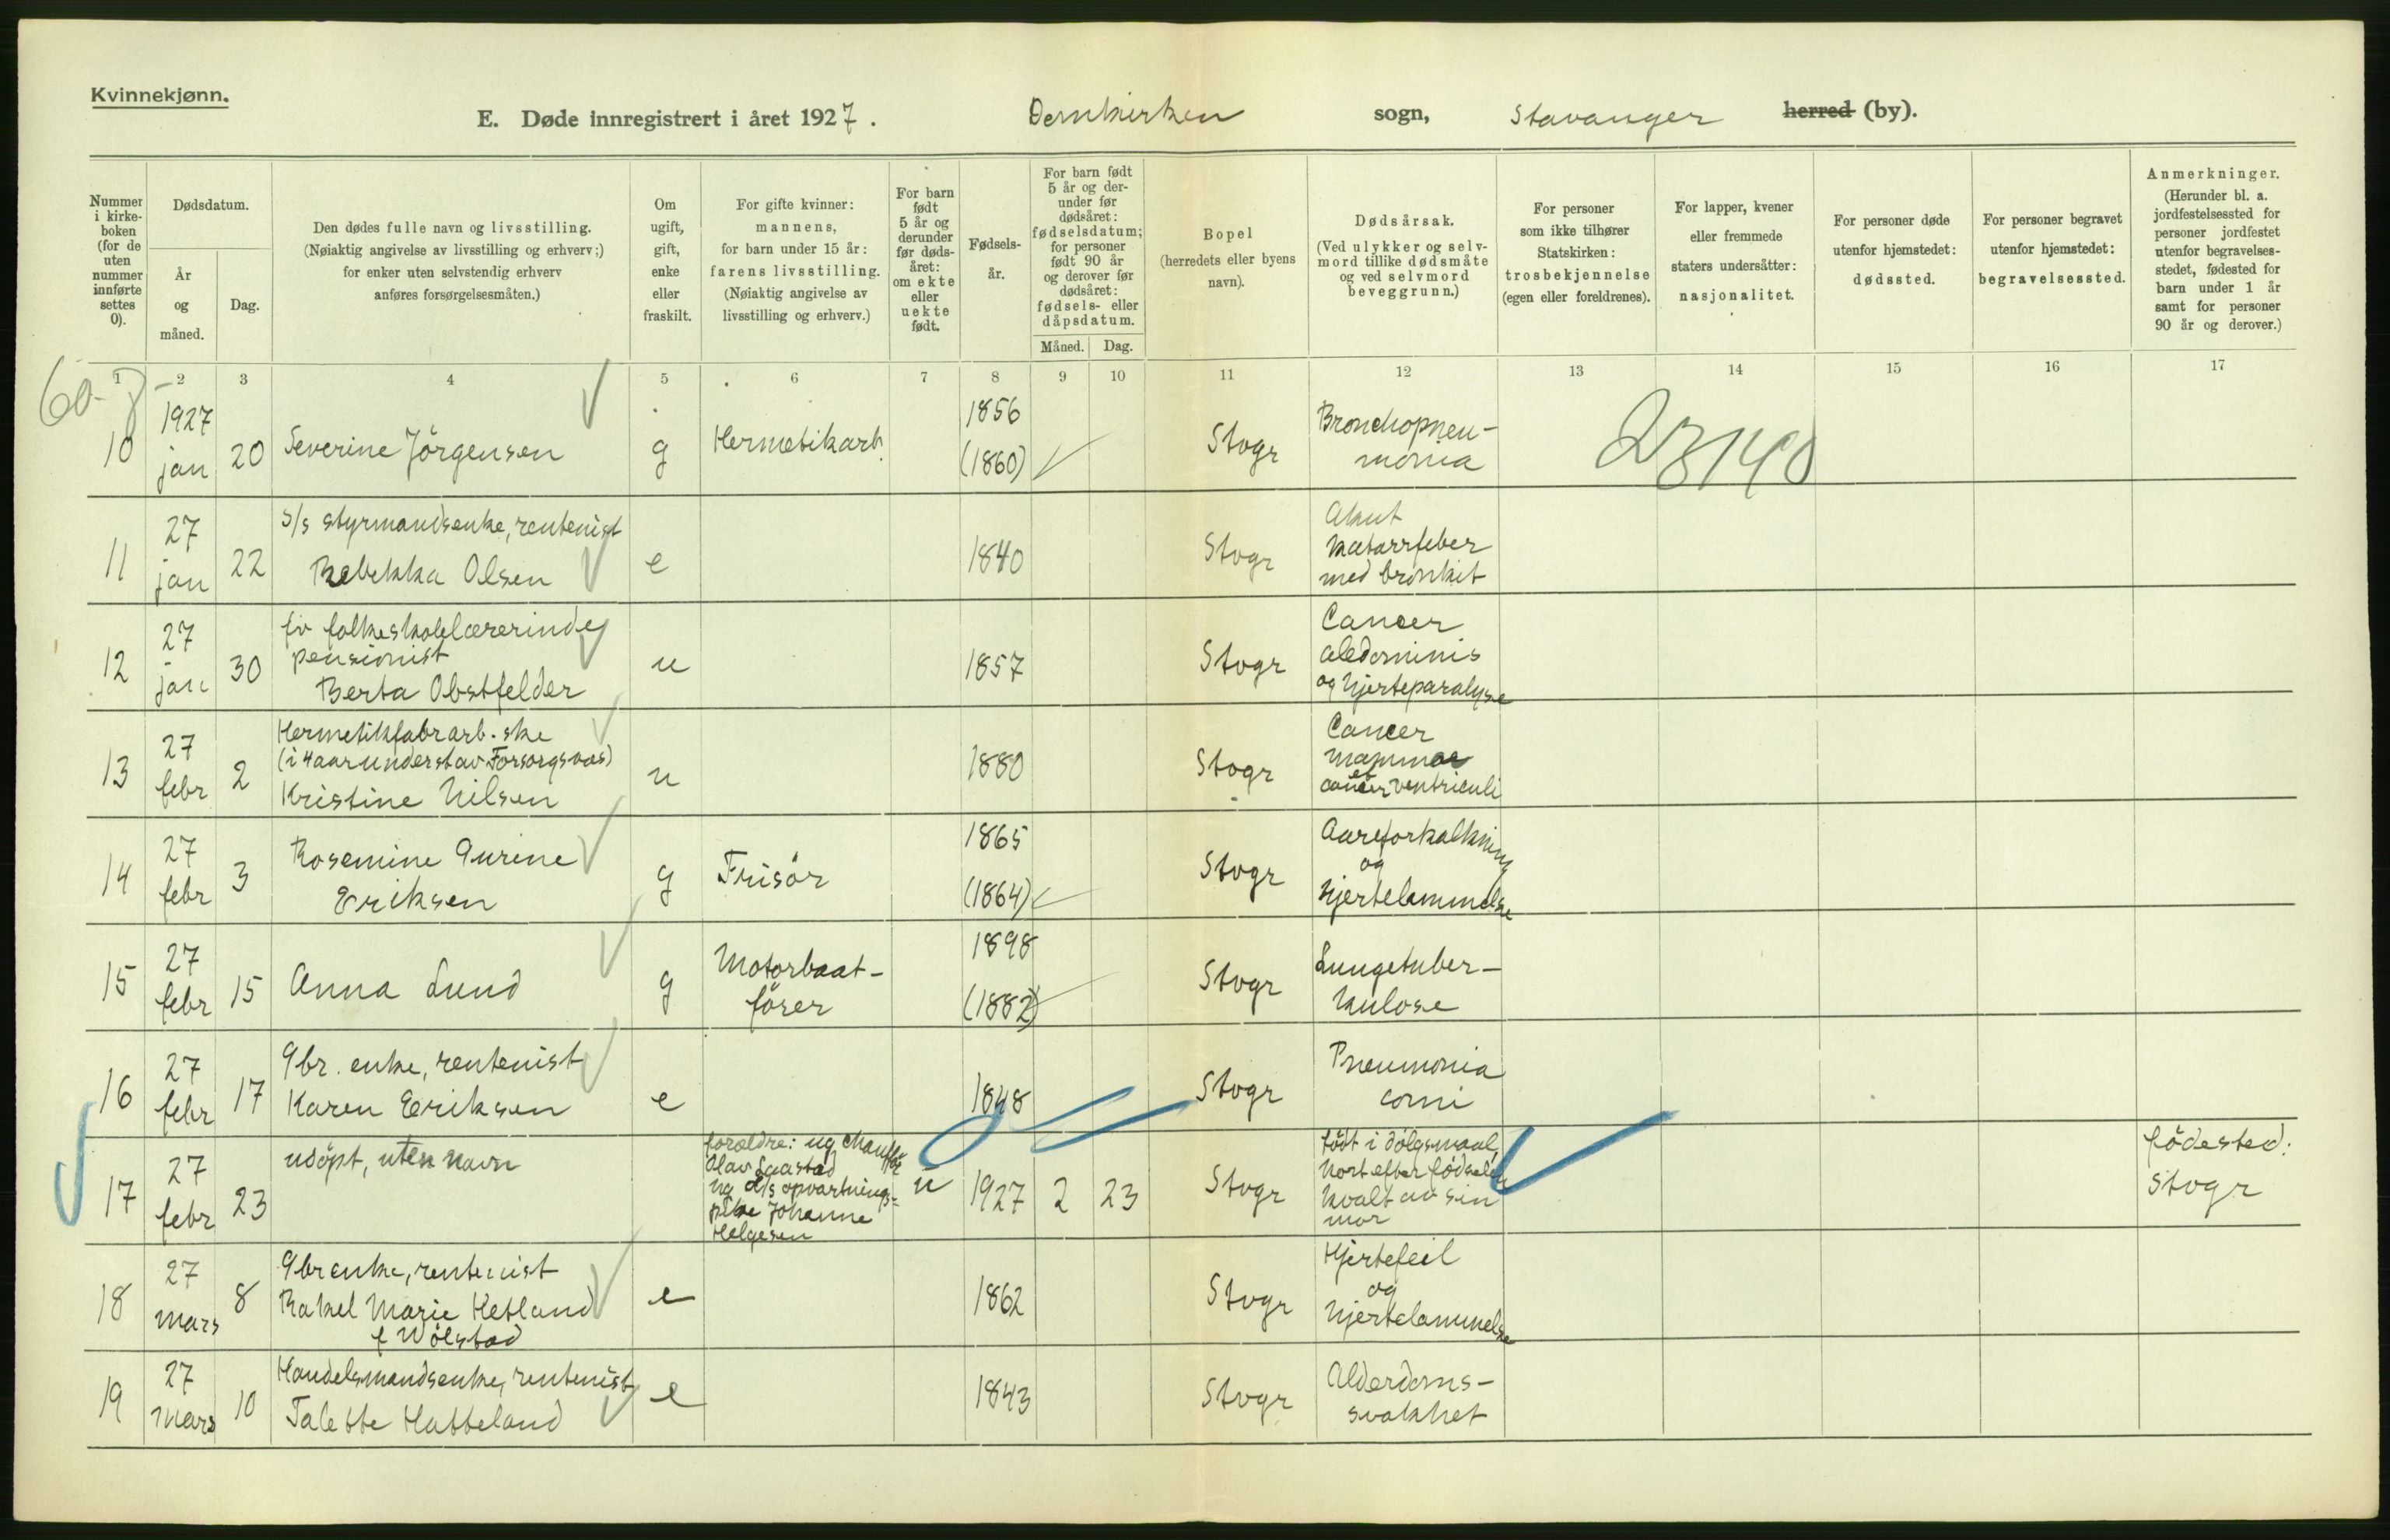 Kvinnekjønn.
E. Døde innregistrert i året 1927. Domkirken sogn, Stavanger herred (by).
Nummer i kirkeboken (for de uten nummer innførte settes 0).
Dødsdatum.
År og måned.
Dag.
Den dødes fulle navn og livsstilling.
(Nøiaktig angivelse av livsstilling og erhverv;)
for enker uten selvstendig erhverv
anføres forsørgelsesmåten.)
Om ugift, gift, enke eller fraskilt.
For gifte kvinner:
mannens,
for barn under 15 år:
farens livsstilling.
(Nøiaktig angivelse av
livsstilling og erhverv.)
For barn født 5 år og derunder før dødsåret: om ekte eller uekte født.
Fødselsår.
For barn født 5 år og derunder før dødsåret: fødselsdatum; for personer født 90 år og derover før dødsåret: fødsels- eller dåpsdatum.
Måned. Dag.
Bopel
(herredets eller byens
navn).
Dødsårsak.
(Ved ulykker og selv-
mord tillike dødsmåte
og ved selvmord
beveggrunn.)
For personer
som ikke tilhører
Statskirken:
trosbekjennelse
(egen eller foreldrenes).
For lapper, kvener
eller fremmede
staters undersåtter:
nasjonalitet.
For personer døde
utenfor hjemstedet:
dødssted.
For personer begravet
utenfor hjemstedet:
begravelsessted.
Anmerkninger.
(Herunder bl. a.
jordfestelsessted for
personer jordfestet
utenfor begravelses-
stedet, fødested for
barn under 1 år
samt for personer
90 år og derover.)
1 2 3 4 5 6 7 8 9 10 11 12 13 14 15 16 17
10 1927 jan 20 Severine Jörgensen g Hermetikarb. 1856 (1860) Stvgr Bronchopneu-
monia
23140
11 27 jan 22 S/s styrmandsenke, rentenist
Rebekka Olsen e 1840 Stvgr Akut
katarrfeber
med bronkit
12 27 jan 30 fv folkeskolelærerinde
pensionist
Berta Obstfelder u 1857 Stvgr Cancer
abdominis
og hjerteparalyse
13 27 febr 2 Hermetikfabrarb.ske
(i 4 aar underst av Forsorgsvæs)
Kristine Nilsen u 1880 Stvgr Cancer
mammae
et
cancer ventriculi
14 27 febr 3 Rosemine Gurine
Eriksen g Frisör 1865 (1864) Stvgr Aareforkalkning
og
hjertelammelse
15 27 febr 15 Anna Lund g Motorbaat-
förer 1898 (1882) Stvgr Lungetuber-
kulose
16 27 febr 17 Gbr. enke, rentenist
Karen Eriksen e 1848 Stvgr Pneumonia
17 27 febr 23 udöpt, uten navn forældre: ug chaufför
Olav Saastad
ug d/s opvartnings-
pike Johanne
Helgesen u 1927 2 23 Stvgr födt i dölgsmaal,
kort efter födselen
kvalt av sin
mor
födested:
Stvgr
18 27 mars 8 Gbrenke, rentenist
Rakel Marie Hetland
f Wölstad e 1862 Stvgr Hjertefeil
og
hjertelammelse
19 27 mars 10 Handelsmandsenke, rentenist
Talette Hatteland e 1843 Stvgr Alderdoms-
svakhet